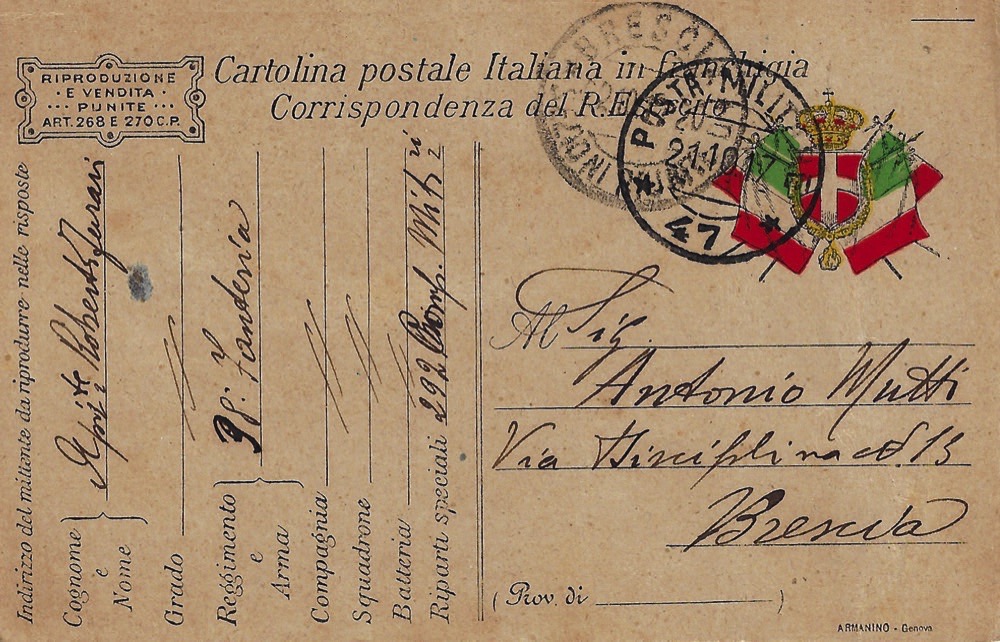 RIPRODUZIONE
E VENDITA
PUNITE
ART. 268 E 270 C.P.
Cartolina postale Italiana in franchigia
Corrispondenza del R. Esercito
BRESCIA
POSTA MILITARE
21.10.17
47
Indirizzo del mittente da riprodurre nelle risposte
Cognome e Nome
Grado
Reggimento e Arma Fanteria
Compagnia
Squadrone
Batteria
Riparti speciali 292 Comp. Mitr.
Al Sig.
Antonio Mutti
Via Disciplina N. 13
Brescia
(Prov. di )
ARMANINO - Genova